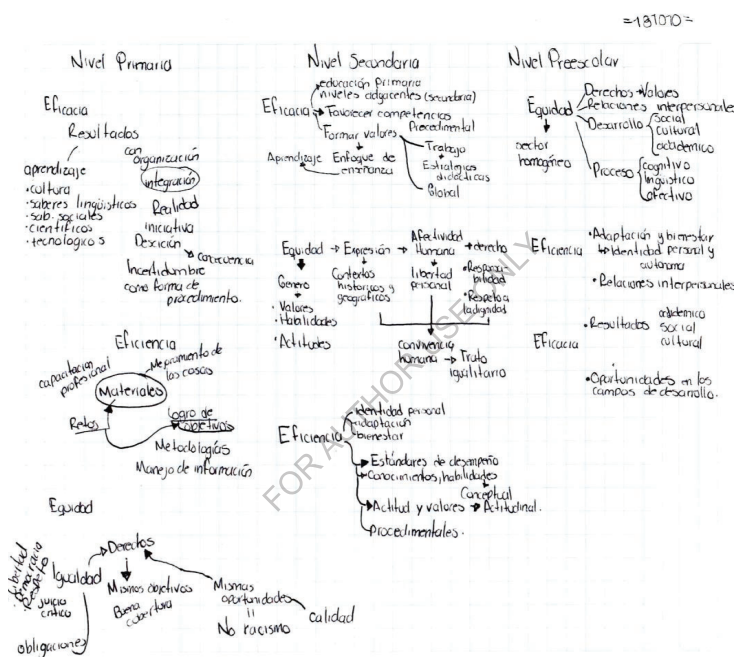 =131010=
Nivel Primaria
Eficacia
Resultados
aprendizaje
•cultura
•saberes lingüisticos
•sab. sociales
•cientificos
•tecnologicos
con organización
integración
Realidad
iniciativa
Desición
consecuencia
Incertidumbre
como forma de
procedimiento.
Eficiencia
capacitación
profesional
Mejoramiento de
las cosas
Materiales
Retos
Logro de
objetivos
Metodologías
Manejo de información
Equidad
Derechos
Igualdad
•Libertad
•Democracia
•Respeto
juicio
critico
obligaciones
Mismos objetivos
Buena
cobertura
Mismas
oportunidades
=
No racismo
calidad
Nivel Secundaria
Eficacia
educación primaria
niveles adyacentes (secundaria)
Favorecer competencias
Formar valores
Procedimental
Trabajo
Estrategias
didácticas
Global
Enfoque de
enseñanza
Aprendizaje
Equidad
Expresión
Afectividad
Humana
derecho
Genero
•Valores
•Habilidades
•Actitudes
Contextos
historicos y
geográficos
libertad
personal
•Responsa-
bilidad
•Respeto a
la dignidad
convivencia
humana
Trato
igualitario
Eficiencia
identidad personal
adaptación
bienestar
Estándares de desempeño
Conocimientos, habilidades
Conceptual
Actitud y valores
Actitudinal.
Procedimentales.
Nivel Preescolar
Equidad
sector
homogéneo
Derechos
Valores
Relaciones interpersonales
Desarrollo
social
cultural
académico
Proceso
cognitivo
linguistico
afectivo
Eficiencia
•Adaptación y bienestar
Identidad personal y
autónoma
•Relaciones interpersonales
Eficacia
•Resultados
académico
social
cultural
•Oportunidades en los
campos de desarrollo.
FOR AUTHOR USE ONLY